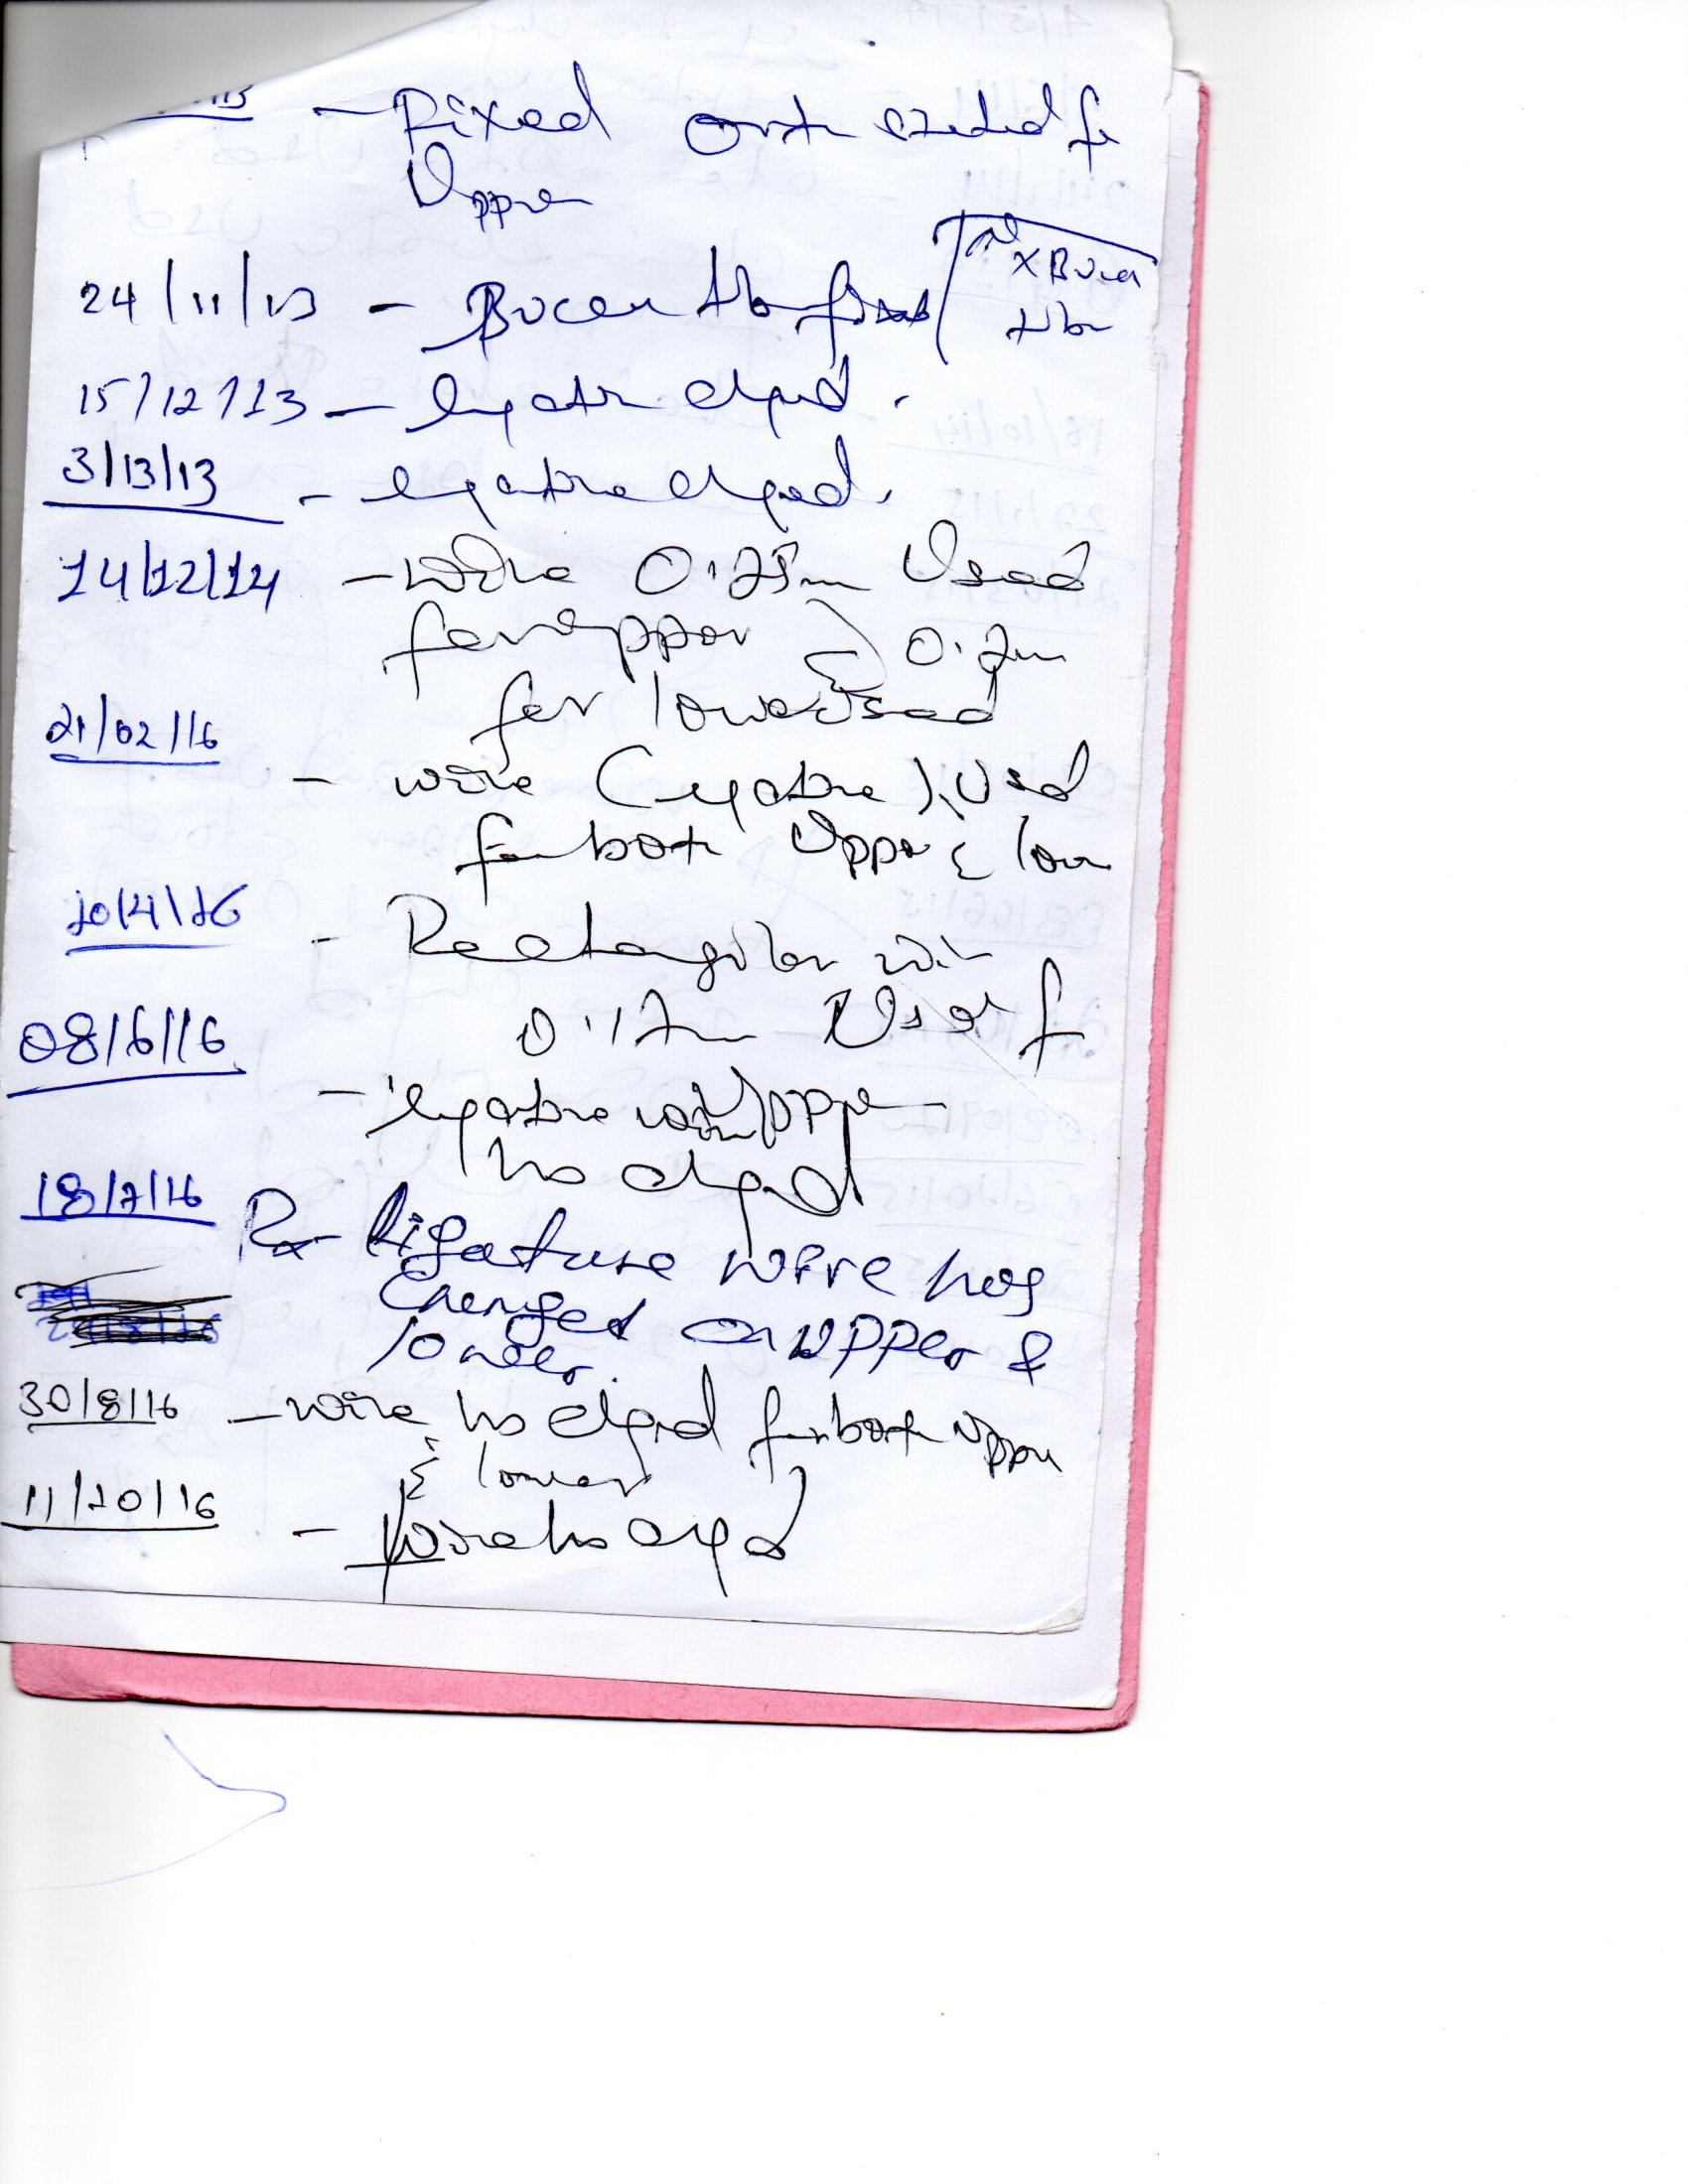 13 - Fixed orth started for
Upper
24/11/13 - Buccal tube fixed
x Buccal
tube
15/12/13 - ligature chged.
3/13/13 - ligature chged.
14/12/14 - wire 0.25m Used
for upper & 0.2m
for lower Used
21/02/16
- wire (ligature) Used
for both Upper & low
20/4/16
- Rectangular wire
08/6/16
0.17m Used f
- ligature wire Upper
has chged
18/7/16
Rx- ligature wire has
changed on upper &
lower.
30/8/16 - wire has chged for both Upper
& lower
11/10/16
- Wire has chged